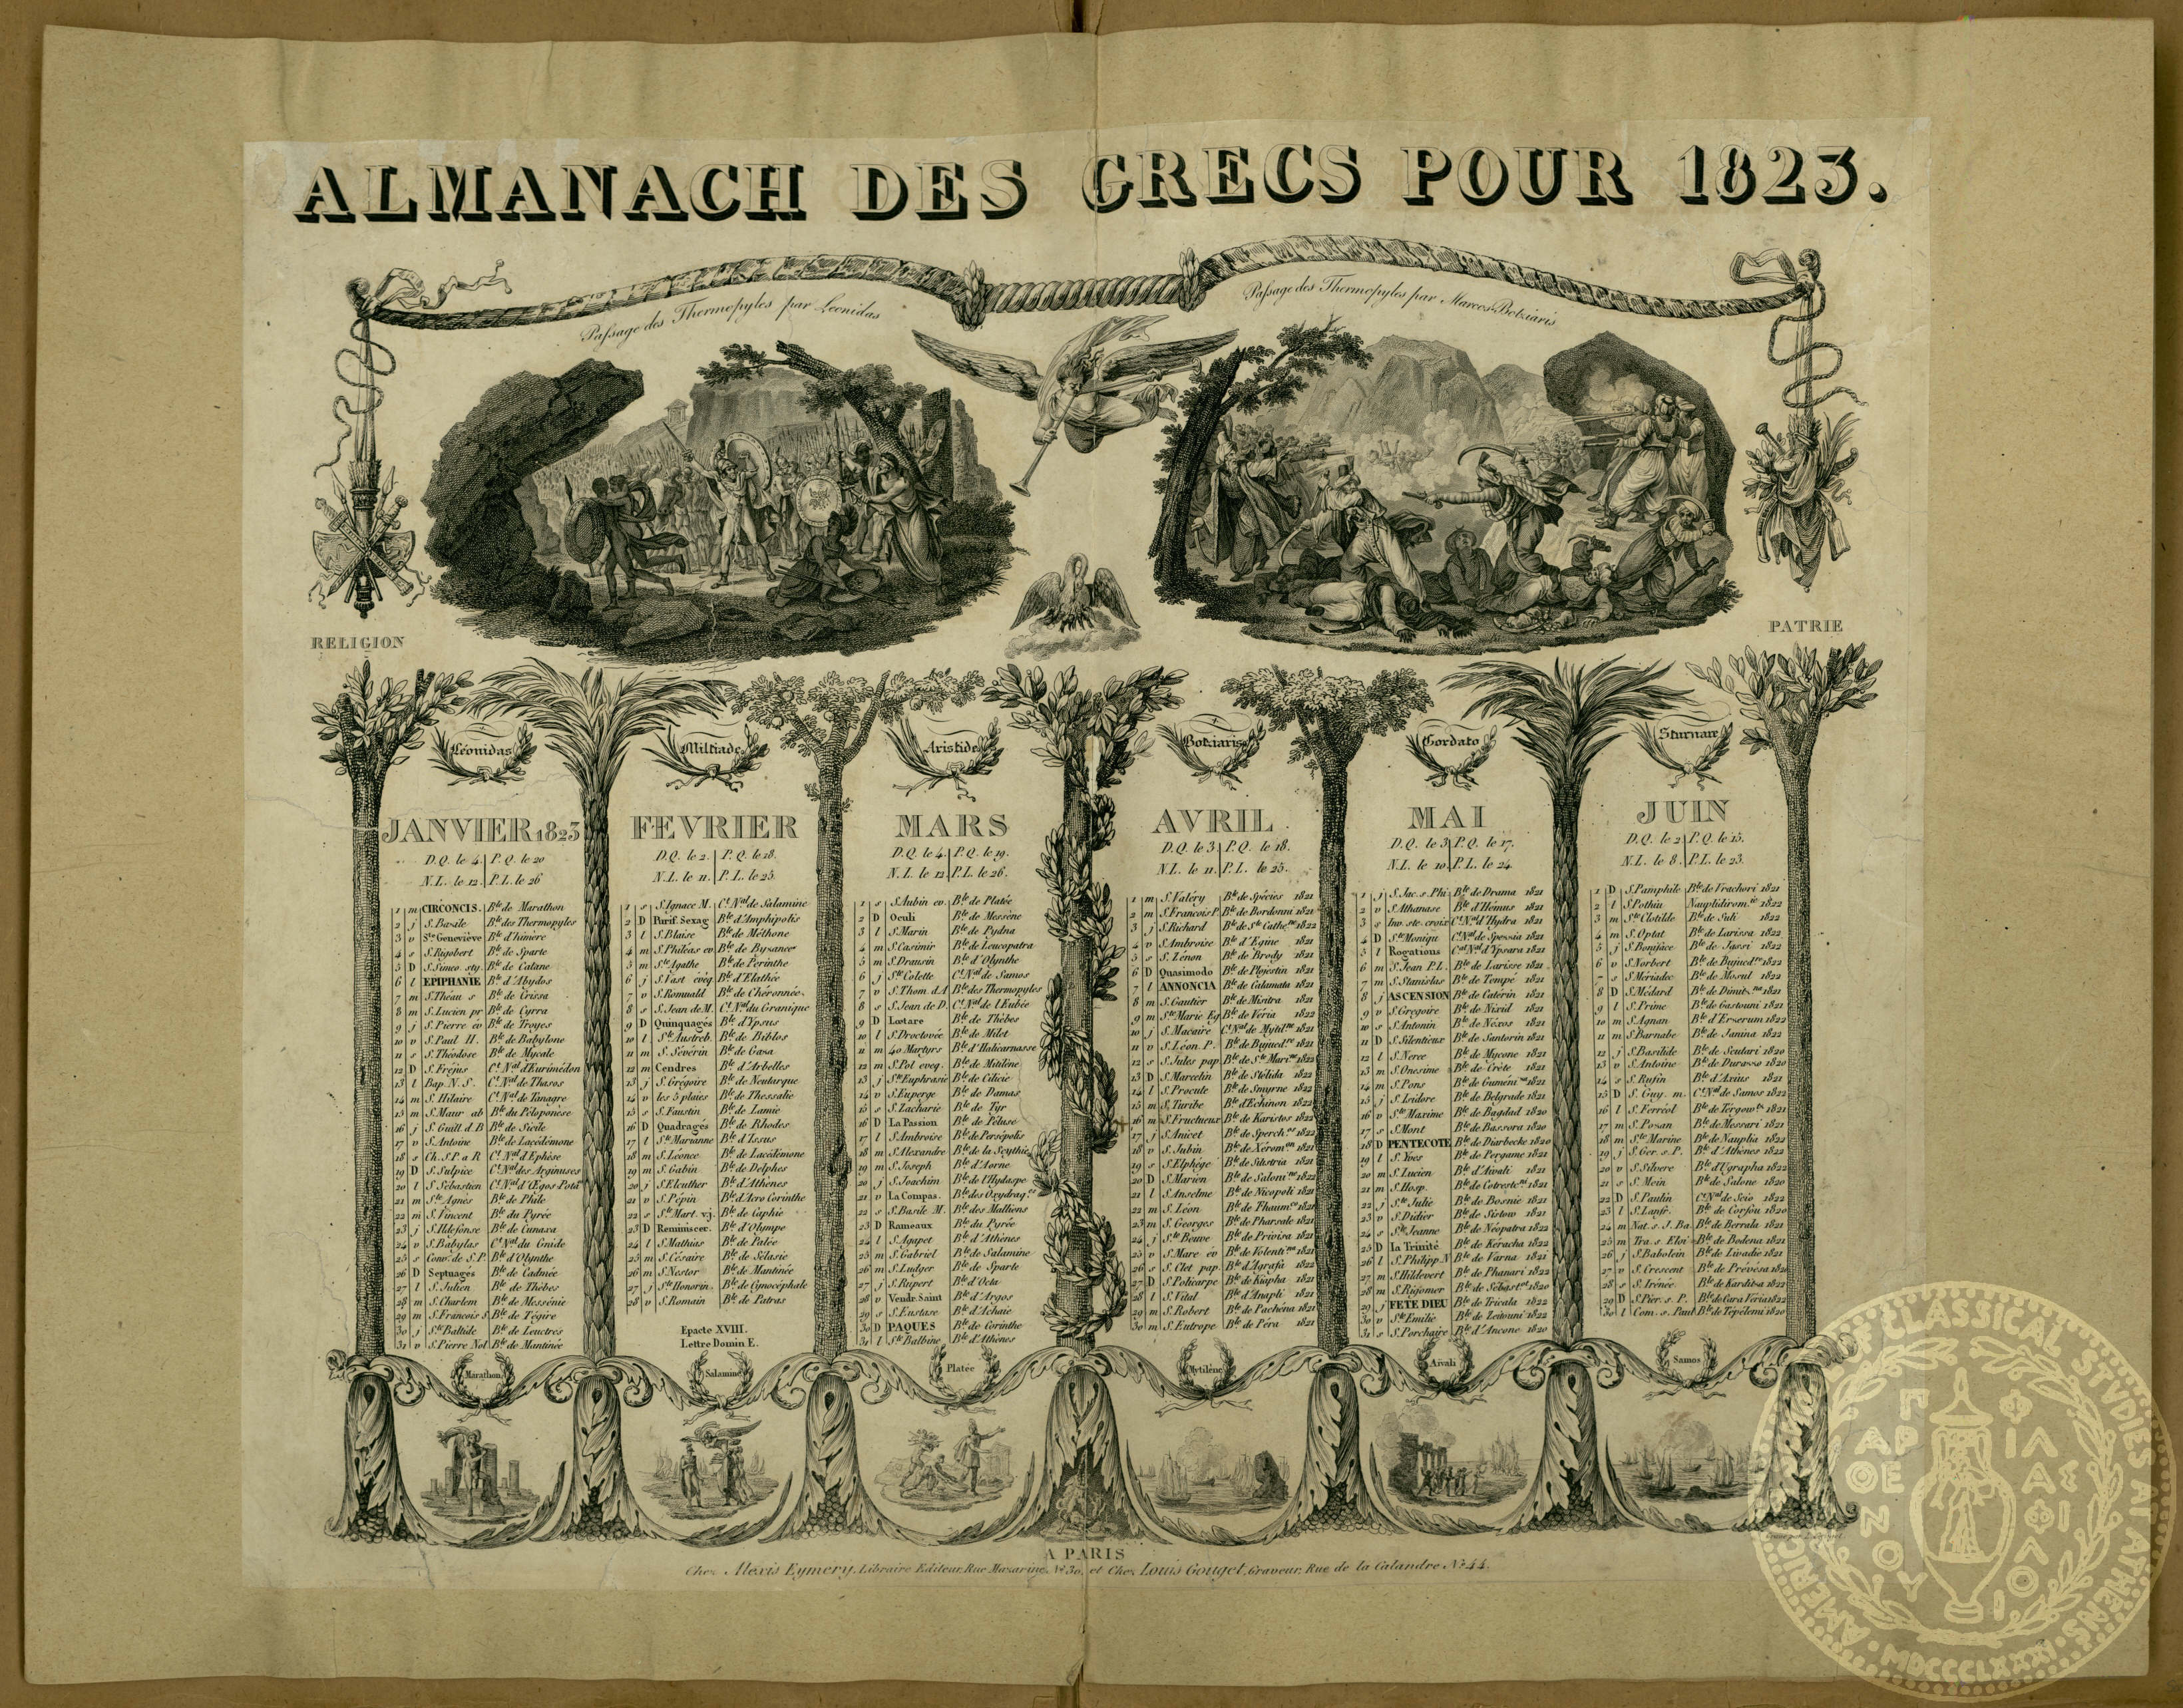 ALMANACH DES GRECS POUR 1823.
Passage des Thermopyles par Leonidas
Passage des Thermopyles par Marcos Botziaris
RELIGION
PATRIE
Léonidas
Miltiade
Aristide
Botziaris
Gordato
Sturnare
JANVIER 1823
D.Q. le 4. P.Q. le 20
N.L. le 12. P.L. le 26
1 m CIRCONCIS. B.le de Marathon
2 j S.Bazile B.le des Thermopyles
3 v S.te Geneviève B.le d'himère
4 s S.Rigobert B.le de Sparte
5 D S.Siméo. sty. B.le de Catane
6 l EPIPHANIE B.le d'Abydos
7 m S.Théau s B.le de Crissa
8 m S.Lucien pr B.le de Cyrra
9 j S.Pierre év B.le de Troyes
10 v S.Paul H. B.le de Babylone
11 s S.Théodose B.le de Mycale
12 D S.Fréjus C.t N.al d'Eurimédon
13 l Bap. N.S. C.t N.al de Thasos
14 m S.Hilaire C.t N.al de Tanagre
15 m S.Maur ab B.le du Péloponèse
16 j S.Guill d.B B.le de Sicile
17 v S.Antoine B.le de Lacédémone
18 s Ch.S.P. a R C.t N.al d'Ephèse
19 D S.Sulpice C.t N.al des Arginuses
20 l S.Sébastien C.t N.al d'Ægos Pota
21 m S.te Agnès B.le de Phile
22 m S.Vincent B.le du Pyrée
23 j S.Ildefonse B.le de Cunaxa
24 v S.Babylas C.t N.al du Gnide
25 s Conv. de S.P. B.le d'Olynthe
26 D Septuages B.le de Cadmée
27 l S.Julien B.le de Thèbes
28 m S.Charlem B.le de Messénie
29 m S.Francois S. B.le de Tégire
30 j S.te Baltilde B.le de Leuctres
31 v S.Pierre Nol B.le de Mantinée
FEVRIER
D.Q. le 2. P.Q. le 18.
N.L. le 11. P.L. le 25
1 s S.Ignace M. C.t N.al de Salamine
2 D Purif. Sexag B.le d'Amphipolis
3 l S.Blaise B.le de Méthone
4 m S.Philéas ev B.le de Byzance
5 m S.te Agathe B.le de Perinthe
6 j S.Vast évêq B.le d'Elathée
7 v S.Romuald B.le de Chéronnée
8 s S.Jean de M. C.t N.al du Granique
9 D Quinquages B.le d'Ypsus
10 l S.te Austreb. B.le de Biblos
11 m S.Sévérin B.le de Gaza
12 m Cendres B.le d'Arbelles
13 j S.Grégoire B.le de Neutarque
14 v les 5 plaies B.le de Thessalie
15 s S.Faustin B.le de Lamie
16 D Quadrages B.le de Rhodes
17 l S.te Marianne B.le d'Issus
18 m S.Léonce B.le de Lacédémone
19 m S.Gabin B.le de Delphes
20 j S.Eleuther B.le d'Athènes
21 v S.Pépin B.le d'Acro Corinthe
22 s S.te Mart. v.j. B.le de Caphie
23 D Reminiscer. B.le d'Olympe
24 l S.Mathias B.le de Palée
25 m S.Césaire B.le de Sélasie
26 m S.Nestor B.le de Mantinée
27 j S.te Honorin. B.le de Cynocéphale
28 v S.Romain B.le de Patras
Epacte XVIII.
Lettre Domin E.
MARS
D.Q. le 4. P.Q. le 19.
N.L. le 12 P.L. le 26.
1 s S.Aubin ev. B.le de Platée
2 D Oculi B.le de Messène
3 l S.Marin B.le de Pydna
4 m S.Casimir B.le de Leucopatra
5 m S.Drausin B.le d'Olynthe
6 j S.te Colette C.t N.al de Samos
7 v S.Thom. d.A B.le des Thermopyles
8 s S.Jean de D. C.t N.al de l'Eubée
9 D Lœtare B.le de Thèbes
10 l S.Doctovée B.le de Milet
11 m 40 Martyrs B.le d'Halicarnasse
12 m S.Pol eveq. B.le de Mitilène
13 j S.te Euphrasie B.le de Cilicie
14 v S.Euperge B.le de Damas
15 s S.Zacharie B.le de Tyr
16 D La Passion B.le de Péluse
17 l S.Ambroise B.le de Persépolis
18 m S.Alexandre B.le de la Scythie
19 m S.Joseph B.le d'Aorne
20 j S.Joachim B.le de l'Hydaspe
21 v La Compas. B.le des Oxydraq.es
22 s S.Basile M. B.le des Malliens
23 D Rameaux B.le du Pyrée
24 l S.Agapet B.le d'Athènes
25 m S.Gabriel B.le de Salamine
26 m S.Ludger B.le de Sparte
27 j S.Rupert B.le d'Oeta
28 v Vendr. Saint B.le d'Argos
29 s S.Eustase B.le d'Achaie
30 D PAQUES B.le de Corinthe
31 l S.te Balbine B.le d'Athènes
AVRIL
D.Q. le 3 P.Q. le 18.
N.L. le 11 P.L. le 25.
1 m S.Valéry B.le de Spécies 1821
2 m S.François P. B.le de Bordonni 1821
3 j S.Richard B.le de S.te Cathe.ne 1822
4 v S.Ambroise B.le d'Egine 1821
5 s S.Zénon B.le de Brody 1821
6 D Quasimodo B.le de Plojestin 1821
7 l ANNONCIA B.le de Calamata 1821
8 m S.Gautier B.le de Misitra 1821
9 m S.te Marie Eg B.le de Véria 1822
10 j S.Macaire C.t N.al de Mytil.ne 1821
11 v S.Léon. P. B.le de Bujucd.re 1821
12 s S.Jules pap B.le de S.te Mari.ne 1822
13 D S.Marcelin B.le de Stélida 1822
14 l S.Procule B.le de Smyrne 1822
15 m S.Turibe B.le d'Echinon 1822
16 m S.Fructueux B.le de Karistos 1822
17 j S.Anicet B.le de Sperch.us 1822
18 v S.Jubin B.le de Xérom.on 1821
19 s S.Elphège B.le de Silistria 1821
20 D S.Marien B.le de Saloni.ue 1822
21 l S.Anselme B.le de Nicopoli 1821
22 m S.Léon B.le de Phaum.es 1821
23 m S.Georges B.le de Pharsale 1821
24 j S.te Beuve B.le de Privisa 1821
25 v S.Marc ev B.le de Volenti.na 1821
26 s S.Clet pap. B.le d'Agrafa 1822
27 D S.Policarpe B.le de Kiapha 1821
28 l S.Vital B.le d'Anapli 1821
29 m S.Robert B.le de Pachéna 1821
30 m S.Eutrope B.le de Péra 1821
MAI
D.Q. le 3 P.Q. le 17.
N.L. le 10 P.L. le 24
1 j S.Jac. s. Phi B.le de Drama 1821
2 v S.Athanase B.le d'Hémus 1821
3 s Inv. ste. croix C.t N.al d'Hydra 1821
4 D S.te Moniqu C.t N.al de Spezzia 1821
5 l Rogations C.t N.al d'Ypsara 1821
6 m S.Jean P.L. B.le de Larisse 1821
7 m S.Stanislas B.le de Tempé 1821
8 j ASCENSION B.le de Caterin 1821
9 v S.Grégoire B.le de Nizid 1821
10 s S.Antonin B.le de Nèxos 1821
11 D S.Silentieux B.le de Santorin 1821
12 l S.Nerée B.le de Mycone 1821
13 m S.Onesime B.le de Crète 1821
14 m S.Pons B.le de Gumeni.za 1821
15 j S.Isidore B.le de Belgrade 1821
16 v S.te Maxime B.le de Bagdad 1820
17 s S.Mont B.le de Bassora 1820
18 D PENTECOTE B.le de Diarbecke 1820
19 l S.Yves B.le de Pergame 1821
20 m S.Lucien B.le d'Aivali 1821
21 m S.Hosp. B.le de Cotreste.ni 1821
22 j S.te Julie B.le de Bosnie 1821
23 v S.Didier B.le de Sistow 1821
24 s S.te Jeanne B.le de Néopatra 1822
25 D la Trinité B.le de Kéracha 1822
26 l S.Philipp N B.le de Varna 1821
27 m S.Hildevert B.le de Phanari 1822
28 m S.Rigomer B.le de Sébast.ol 1820
29 j FETE DIEU B.le de Tricala 1822
30 v S.te Emilie B.le de Zeitouni 1822
31 s S.Porchaire B.le d'Ancone 1820
JUIN
D.Q. le 2 P.Q. le 15.
N.L. le 8. P.L. le 23.
1 D S.Pamphile B.le de Vrachori 1821
2 l S.Pothin Nauplidirom. 1822
3 m S.te Clotilde B.le de Suli 1822
4 m S.Optat B.le de Larissa 1822
5 j S.Boniface B.le de Jassi 1821
6 v S.Norbert B.le de Bujucd.re 1822
7 s S.Mériadec B.le de Mosul 1822
8 D S.Médard B.le de Dimit.na 1821
9 l S.Prime B.le de Gastouni 1821
10 m S.Agnan B.le d'Erzerum 1822
11 m S.Barnabe B.le de Janina 1822
12 j S.Basilide B.le de Scutari 1820
13 v S.Antoine B.le de Durazzo 1820
14 s S.Rufin B.le d'Axius 1821
15 D S.Guy. m. C.t N.al de Samos 1822
16 l S.Ferréol B.le de Tergow.ts 1821
17 m S.Pozan B.le de Messari 1821
18 m S.te Marine B.le de Nauplia 1822
19 j S.Ger. s. P. B.le d'Athènes 1822
20 v S.Silvere B.le d'Ugrapha 1822
21 s S.Mein B.le de Salone 1820
22 D S.Paulin C.t N.al de Scio 1822
23 l S.Lanfr. B.le de Corfou 1820
24 m Nat. s. J. Ba B.le de Berrala 1821
25 m Tra. s. Eloi B.le de Bodena 1821
26 j S.Babolein B.le de Livadie 1821
27 v S.Crescent B.le de Prévésa 1820
28 s S.Irénée B.le de Karditza 1822
29 D S.Pier. s. P. B.le de Cara Veria 1822
30 l Com. s. Paul B.le de Tépélemi 1820
Marathon
Salamine
Platée
Mytilène
Aivali
Samos
A PARIS
Chez Alexis Eymery, Libraire Editeur, Rue Mazarine, N.º 30, et Chez Louis Gouget, Graveur, Rue de la Calandre N.º 44.
AMERICAN SCHOOL OF CLASSICAL STVDIES AT ATHENS
MDCCCLXXXI
ΠΑΡΘΕΝΟΥ
ΦΙΛΑΣ ΦΙΛΟΙ